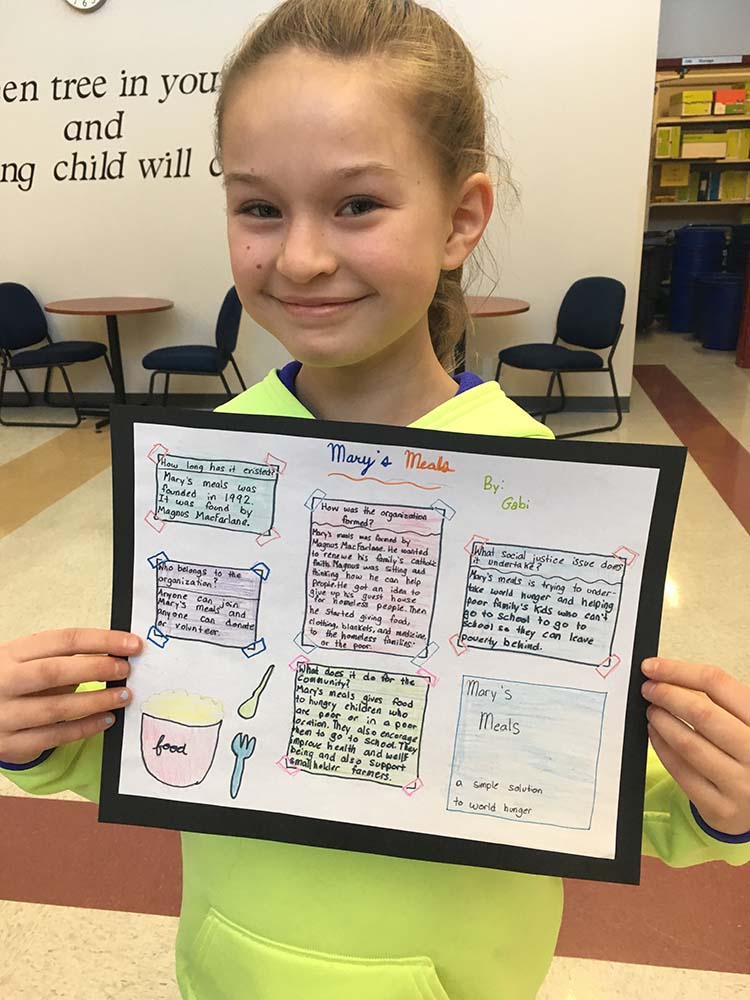 en tree in you
and
ng child will
Mary's Meals
By:
Gabi
How long has it existed?
Mary's meals was
founded in 1992.
It was found by
Magnus MacFarlane.
Who belongs to the
organization?
Anyone can join
Mary's meals and
anyone can donate
or volunteer.
How was the organization
formed?
Mary's meals was formed by
Magnus MacFarlane. He wanted
to renewe his family's catholic
faith. Magnus was sitting and
thinking how he can help
people. He got an idea to
give up his guest house
for homeless people. Then
he started giving food,
clothing, blankets, and medicine,
to the homeless families
or the poor.
What social justice issue does
it undertake?
Mary's meals is trying to under-
take world hunger and helping
poor family's kids who can't
go to school to go to
school so they can leave
poverty behind.
What does it do for the
community?
Mary's meals gives food
to hungry children who
are poor or in a poor
location. They also encourage
them to go to school. They
improve health and wellf
being and also support
small holder farmers.
food
Mary's
Meals
a simple solution
to world hunger